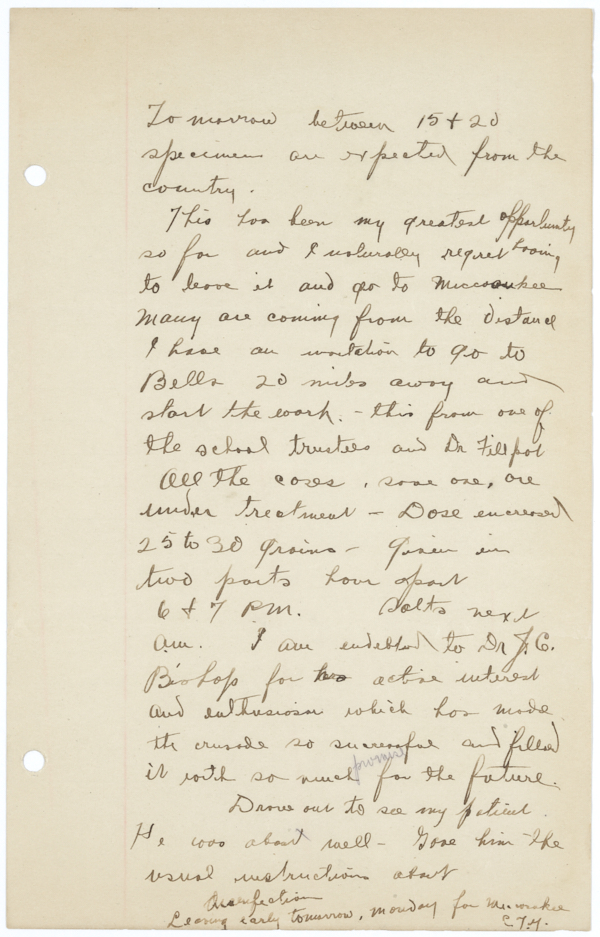 Tomorrow between 15 & 20
specimens are expected from the
country.
This has been my greatest opportunity
so far and I naturally regret having
to leave it and go to
Many are coming from the distance
I have an invitation to go to
Bells 20 miles away and
start the work. - this from one of
the school trustees and Dr Fillpot
All the cases, save one, are
under treatment - Dose encreased
25 to 30 grains - given in
two parts hour apart
6 & 7 P.M. Salts next
a.m. I am endebted to Dr J.C.
Bishop for his active interest
and enthusiasm which has made
the crusade so successful and filled
it with so much promise for the future.
Drove out to see my patient.
He was about well - Gave him the
usual instructions about
disenfection
Leaving early tomorrow, monday for